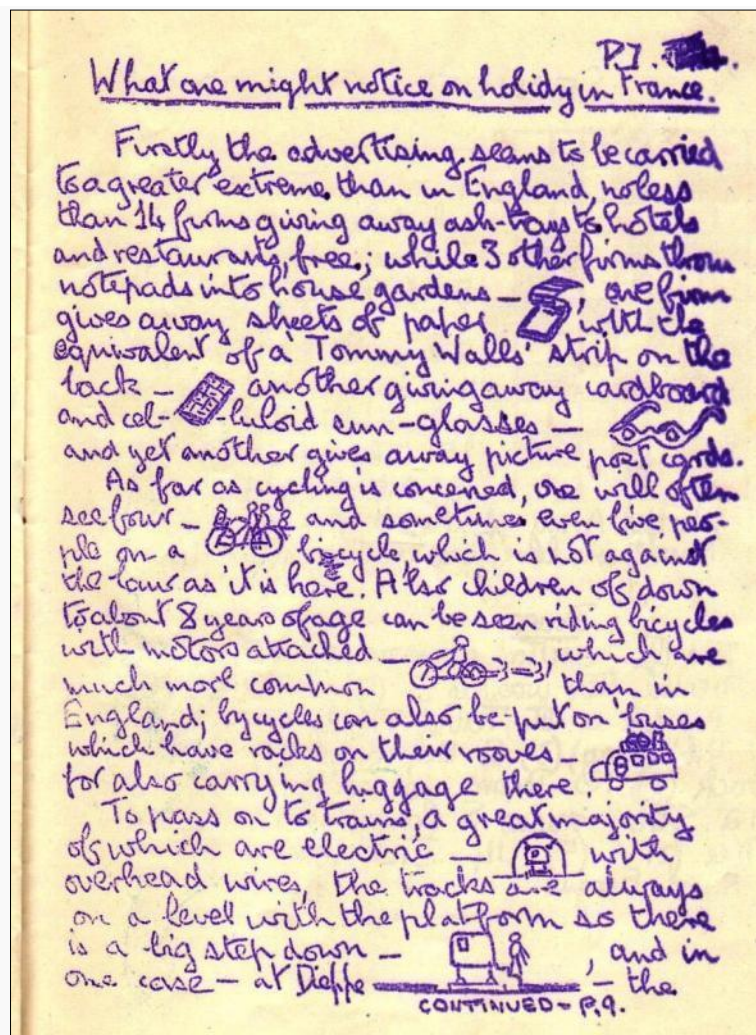 P.7.
What one might notice on holidy in France.
Firstly the advertising seems to be carried
to a greater extreme than in England, no less
than 14 firms giving away ash-trays to hotels
and restaurants, free; while 3 other firms throw
notepads into house gardens – , one firm
gives away sheets of paper with the
equivalent of a 'Tommy Walls' strip on the
back – another giving away cardboard
and cel- -luloid sun-glasses –
and yet another gives away picture post cards.
As far as cycling is concerned, one will often
see four – and sometimes even five, peo-
ple on a bicycle, which is not against
the law as it is here. Also children of down
to about 8 years of age can be seen riding bicycles
with motors attached – , which are
much more common than in
England; bycycles can also be put on buses
which have racks on their rooves
for also carrying luggage there
To pass on to trains, a great majority
of which are electric – with
overhead wires, the tracks are always
on a level with the platform so there
is a big step down – , and in
one case – at Dieppe – the
CONTINUED – P.9.